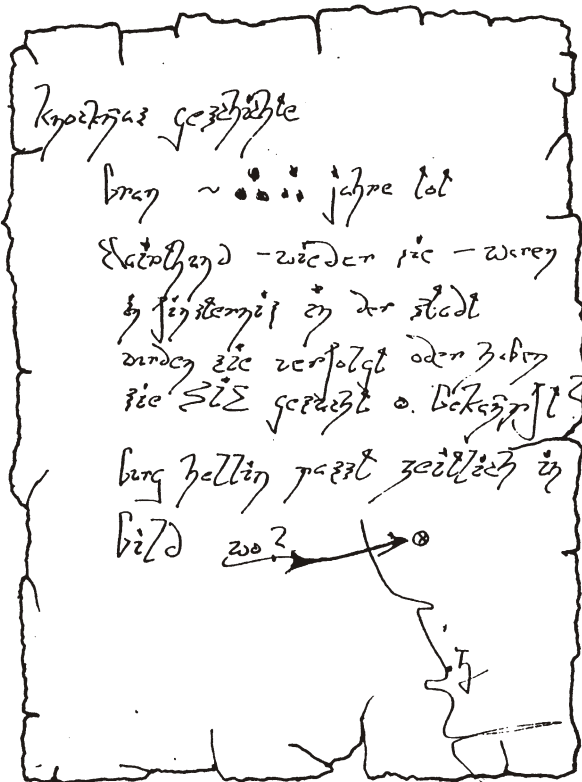 geschichte
bran ~ jahre tot
– wieder sie – waren
in finsternis in der stadt
wurden sie verfolgt oder haben
sie SIE gesucht o. bekämpft?
burg hellin passt zeitlich in
bild wo?